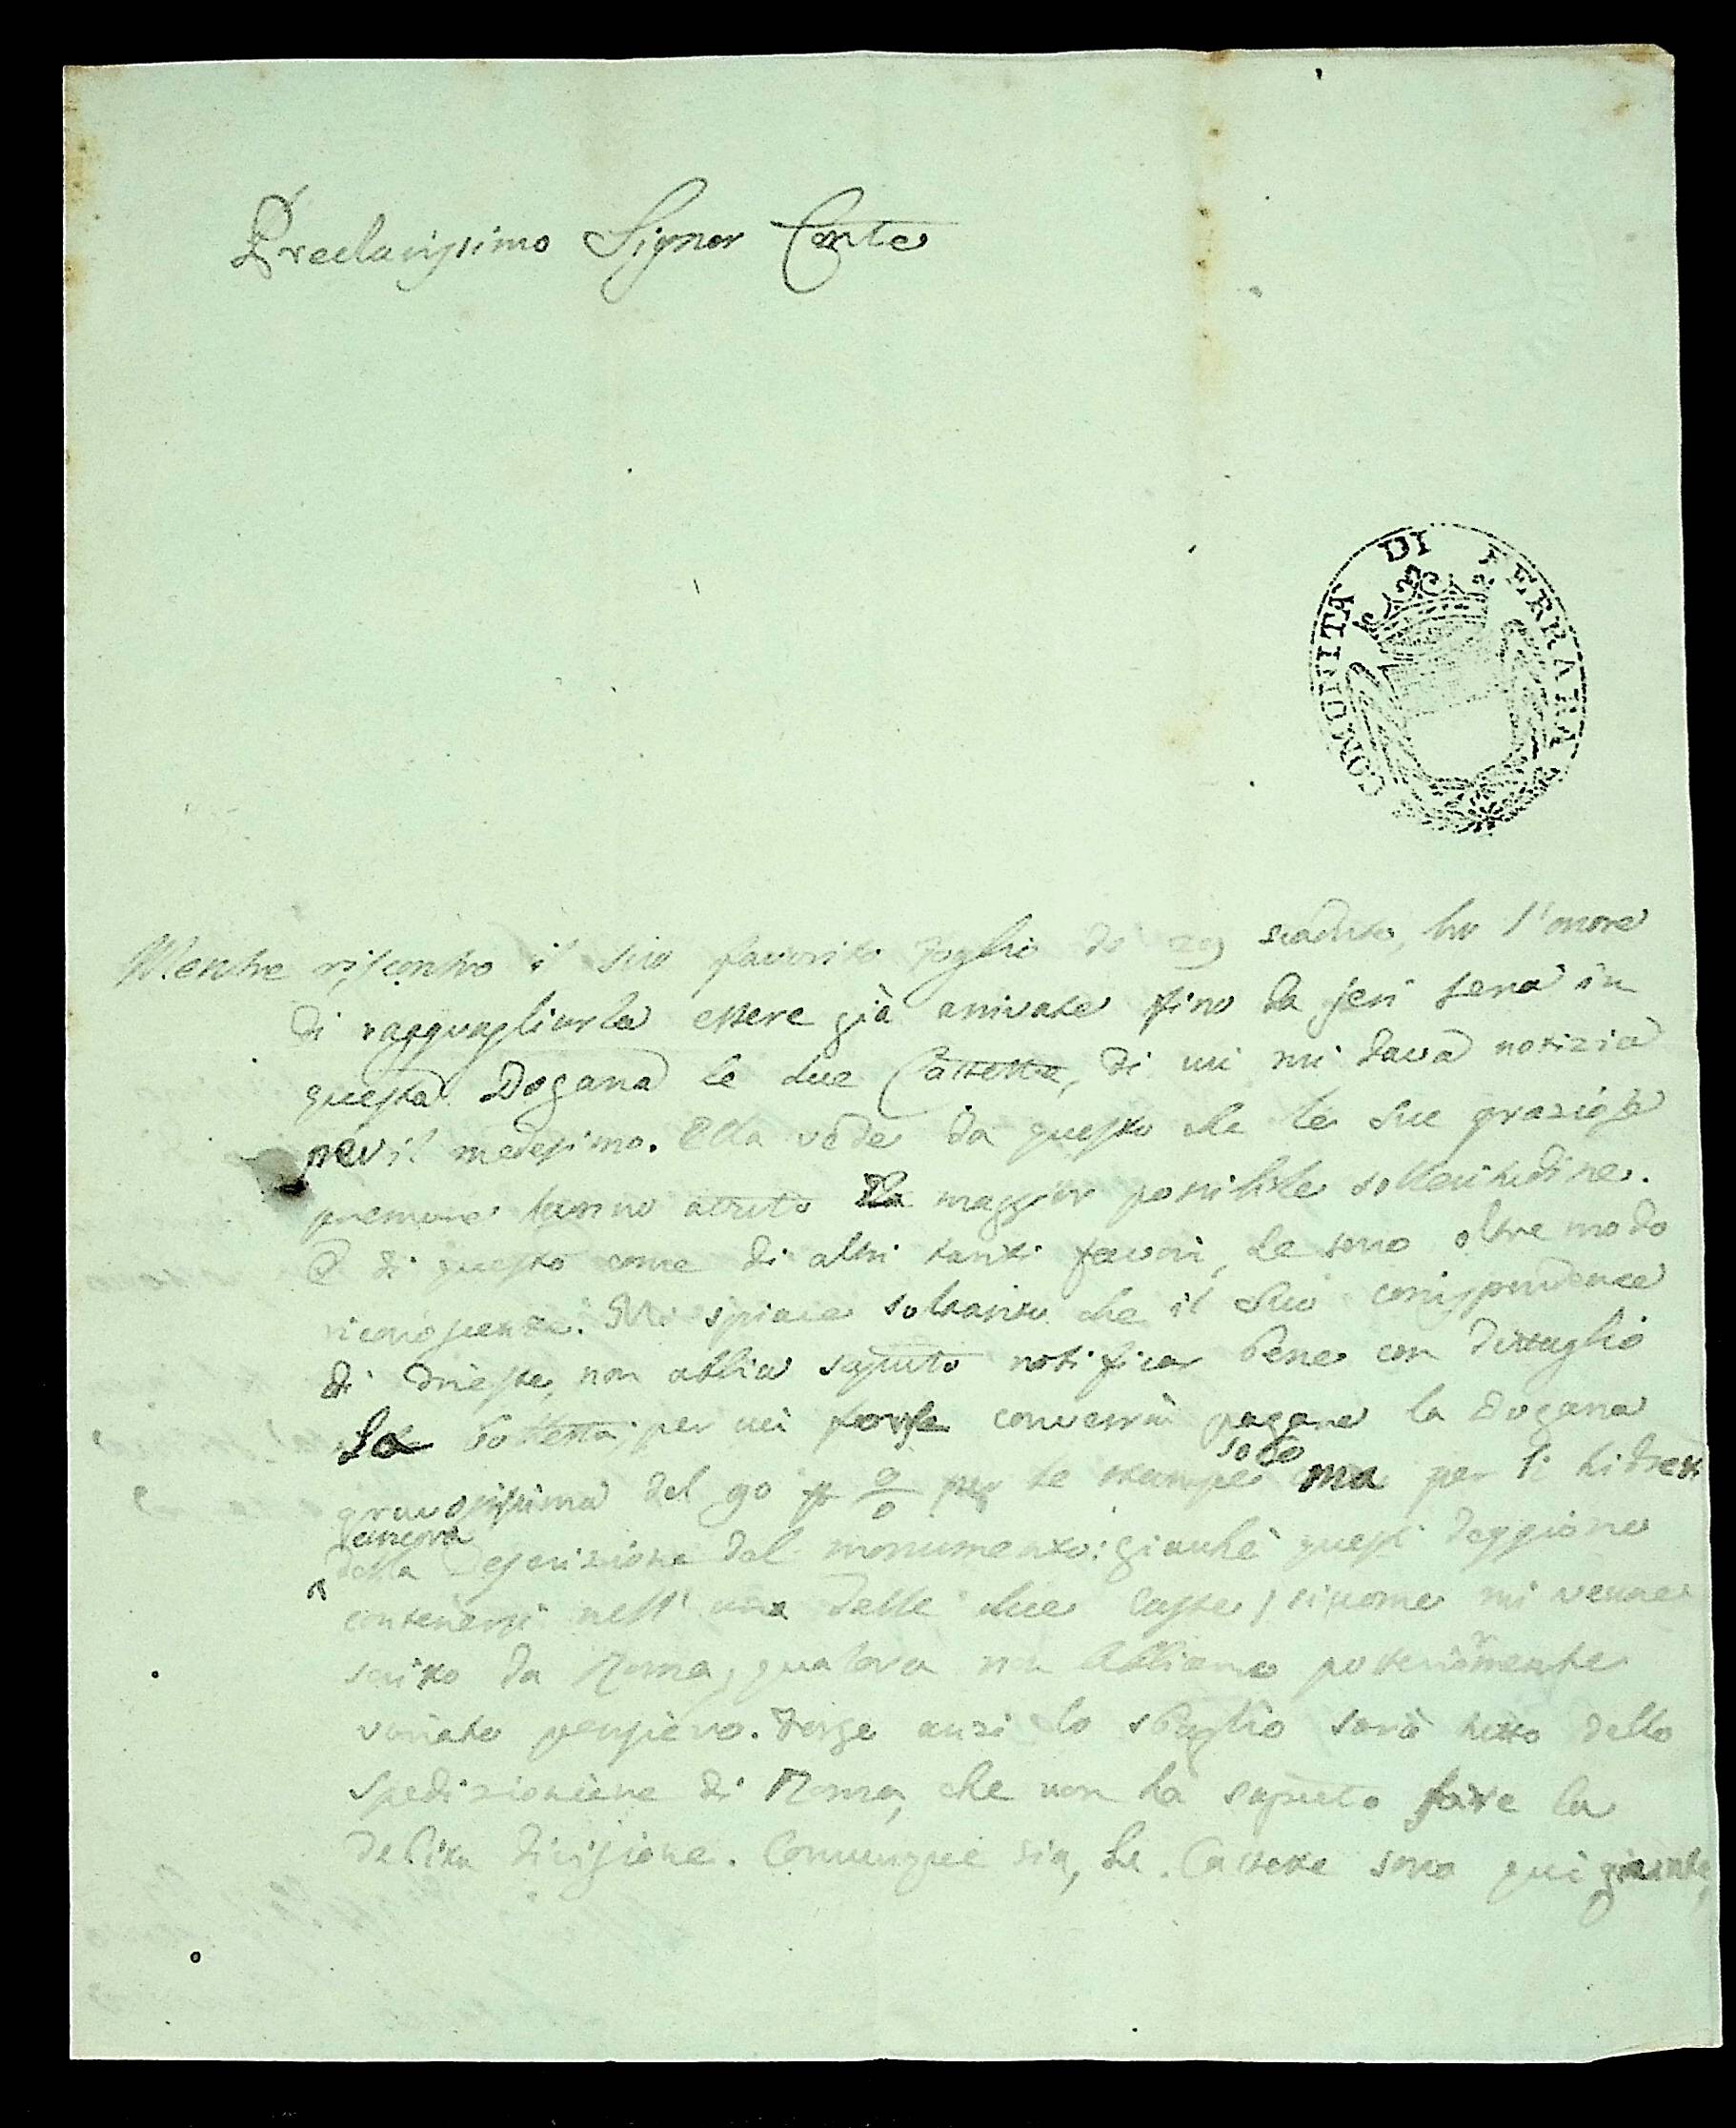 Preclarissimo Signor Conte
COMUNITA DI FERRARA
Mentre riscontro il suo favorito foglio de 29 scaduto, ho l'onore
di ragguagliarla essere già arrivate fino da jeri sera in
questa Dogana le due Cassette, di cui mi dava notizia
nel medesimo. Ella vede da questo che le sue graziose
premure hanno avuto la maggior possibile sollecitudine.
E di questo come di altri tanti favori, Le sono oltre modo
riconoscente. Mi spiace soltanto che il suo corrispondente
di Trieste, non abbia saputo notificar bene con dettaglio
la per cui forse converrà pagare la Dogana
gravosissima del 90 p % per le stampe solo ma per li
della Descrizione del monumento: giacchè questi deggiono
contenersi nell' una delle due casse, siccome mi venne
scritto da Roma, qualora non abbiano posteriormente
variato pensiero. Forse anzi lo sbaglio sarà tutto dello
Spedizioniere di Roma, che non ha saputo fare la
debita divisione. Comunque sia, Le Cassette sono qui giunte,